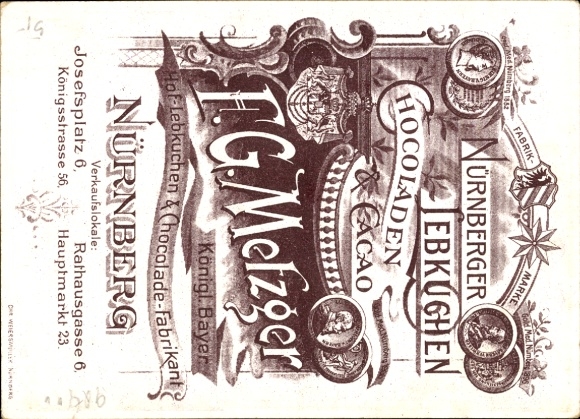 FABRIK-
MARKE
NÜRNBERGER
LEBKUCHEN
CHOCOLADEN
& CACAO
F.G. Metzger
Königl. Bayer.
Hof-Lebkuchen & Chocolade-Fabrikant
NÜRNBERG
Verkaufslokale:
Josefsplatz 6, Rathausgasse 6,
Königsstrasse 56, Hauptmarkt 23.